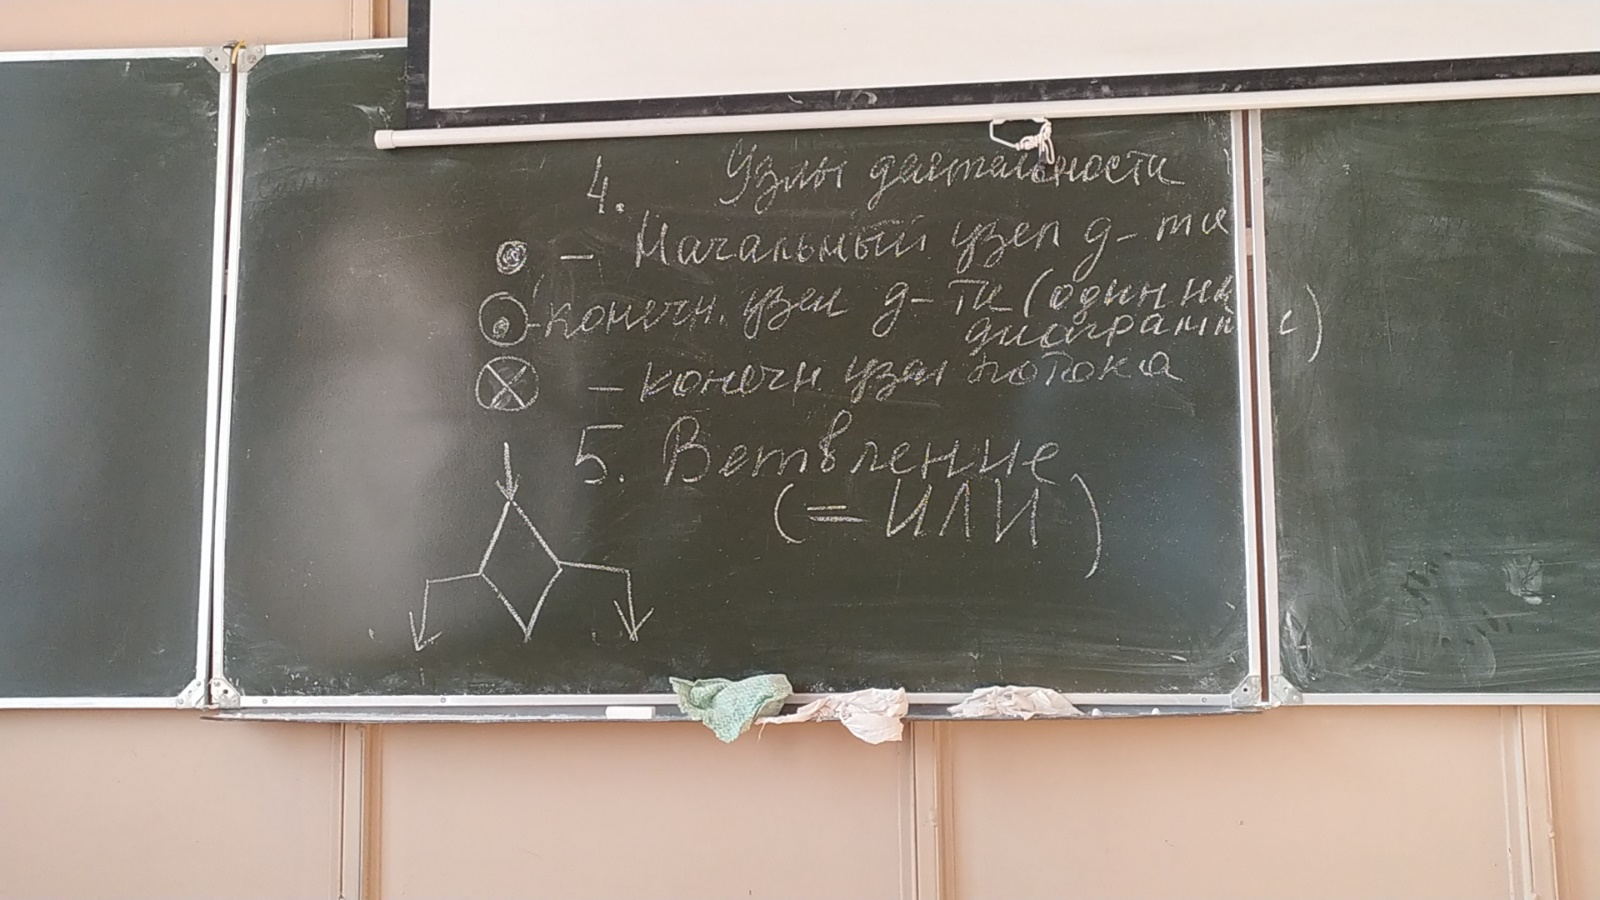 4. Узлы деятельности
– Начальный узел д-ти
- конечн. узел д-ти (один на
диаграмме)
– конечн. узел потока
5. Ветвление
(= ИЛИ)